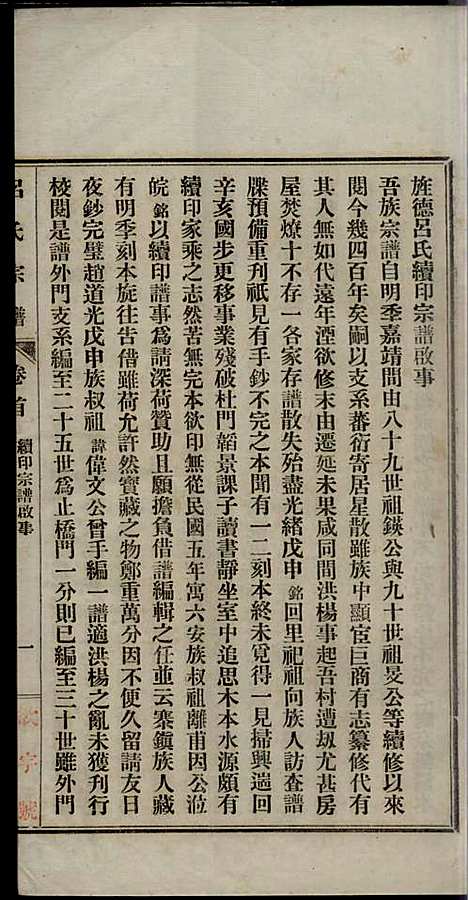 旌德呂氏續印宗譜啟事
吾族宗譜自明季嘉靖間由八十九世祖鍈公與九十世祖旻公等續修以來
閱今幾四百年矣嗣以支系蕃衍寄居星散雖族中顯宦巨商有志纂修代有
其人無如代遠年湮欲修末由遷延未果咸同間洪楊事起吾村遭劫尤甚房
屋焚燎十不存一各家存譜散失殆盡光緒戊申銘回里祀祖向族人訪查譜
牒預備重刊祇見有手鈔不完之本聞有一二刻本終未覓得一見掃興遄回
辛亥國步更移事業殘破杜門韜景課子讀書靜坐室中追思木本水源頗有
續印家乘之志然苦無完本欲印無從民國五年寓六安族叔祖離甫因公涖
皖銘以續印譜事為請深荷贊助且願擔負借譜編輯之任並云寨鎮族人藏
有明季刻本旋往告借雖荷允許然寶藏之物鄭重萬分因不便久留請友日
夜鈔完璧趙道光戊申族叔祖諱偉文公曾手編一譜適洪楊之亂未獲刊行
校閱是譜外門支系編至二十五世為止橋門一分則已編至三十世雖外門
呂氏宗譜 卷首 續印宗譜啟事 一
字號